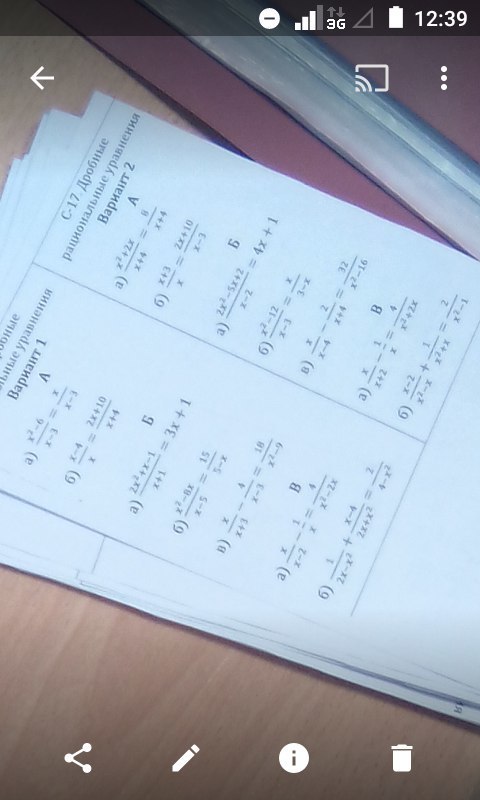 3G 12:39
Вариант 1
А
а) x²−6/x−3 = x/x−3
б) x−4/x = 2x+10/x+4
Б
а) 2x²+x−1/x+1 = 3x + 1
б) x²−8x/x−5 = 15/5−x
в) x/x+3 − 4/x−3 = 18/x²−9
В
а) x/x−2 − 1/x = 4/x²−2x
б) 1/2x−x² + x−4/2x+x² = 2/4−x²
С-17. Дробные
рациональные уравнения
Вариант 2
А
а) x²+2x/x+4 = 8/x+4
б) x+3/x = 2x+10/x−3
Б
а) 2x²−5x+2/x−2 = 4x + 1
б) x²−12/x−3 = x/3−x
в) x/x−4 − 2/x+4 = 32/x²−16
В
а) x/x+2 − 1/x = 4/x²+2x
б) x−2/x²−x + 1/x²+x = 2/x²−1